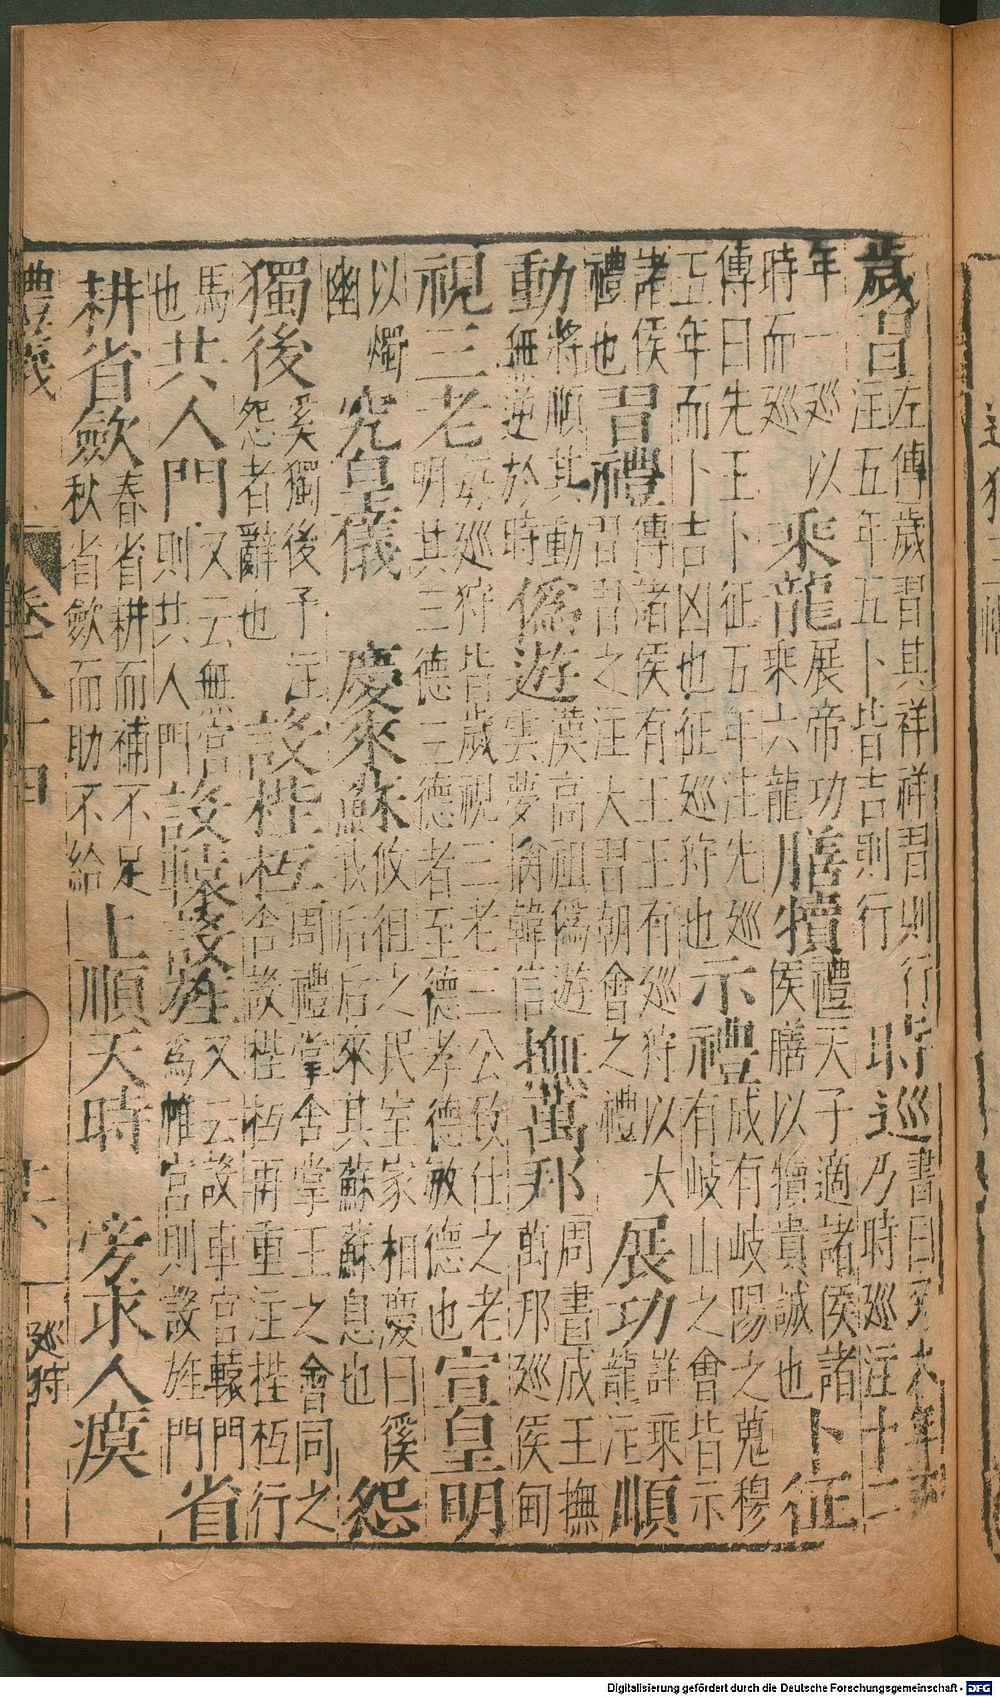 歲習左傳歲習其祥祥習則行注五年五卜皆吉則行 時巡書曰又六年王乃時巡注十二
年一巡以時而巡 乘龍展帝功乘六龍 膳犢禮天子適諸侯諸侯膳以犢貴誠也 卜征
傳曰先王卜征五年注先巡五年而卜吉凶也征巡狩也 示禮成有岐陽之蒐穆有岐山之會皆示
諸侯禮也 習禮傳諸侯有王王有巡狩以大習習之注大習朝會之禮 展功詳乘龍注 順
動將順其動無逆於時 偽遊漢高祖偽遊雲夢擒韓信 撫萬邦周書成王撫萬邦巡侯甸
視三老巡狩皆歲視三老三公致仕之老明其三德三德者至德孝德敏德也 宣皇明
以燭幽 究皇儀 慶來蘇攸徂之民室家相慶曰徯我后后來其蘇蘇息也 怨
獨後奚獨後予注怨者辭也 設梐枑周禮掌舍掌王之會同之舍設梐枑再重注梐枑行
馬也 共人門又云無宮則共人門 設轅設旌又云設車宮轅門為帷宮則設旌門 省
耕省斂春省耕而補不足秋省斂而助不給 上順天時 旁求人瘼
禮義 卷八十四 巡狩
Digitalisierung gefördert durch die Deutsche Forschungsgemeinschaft - DFG